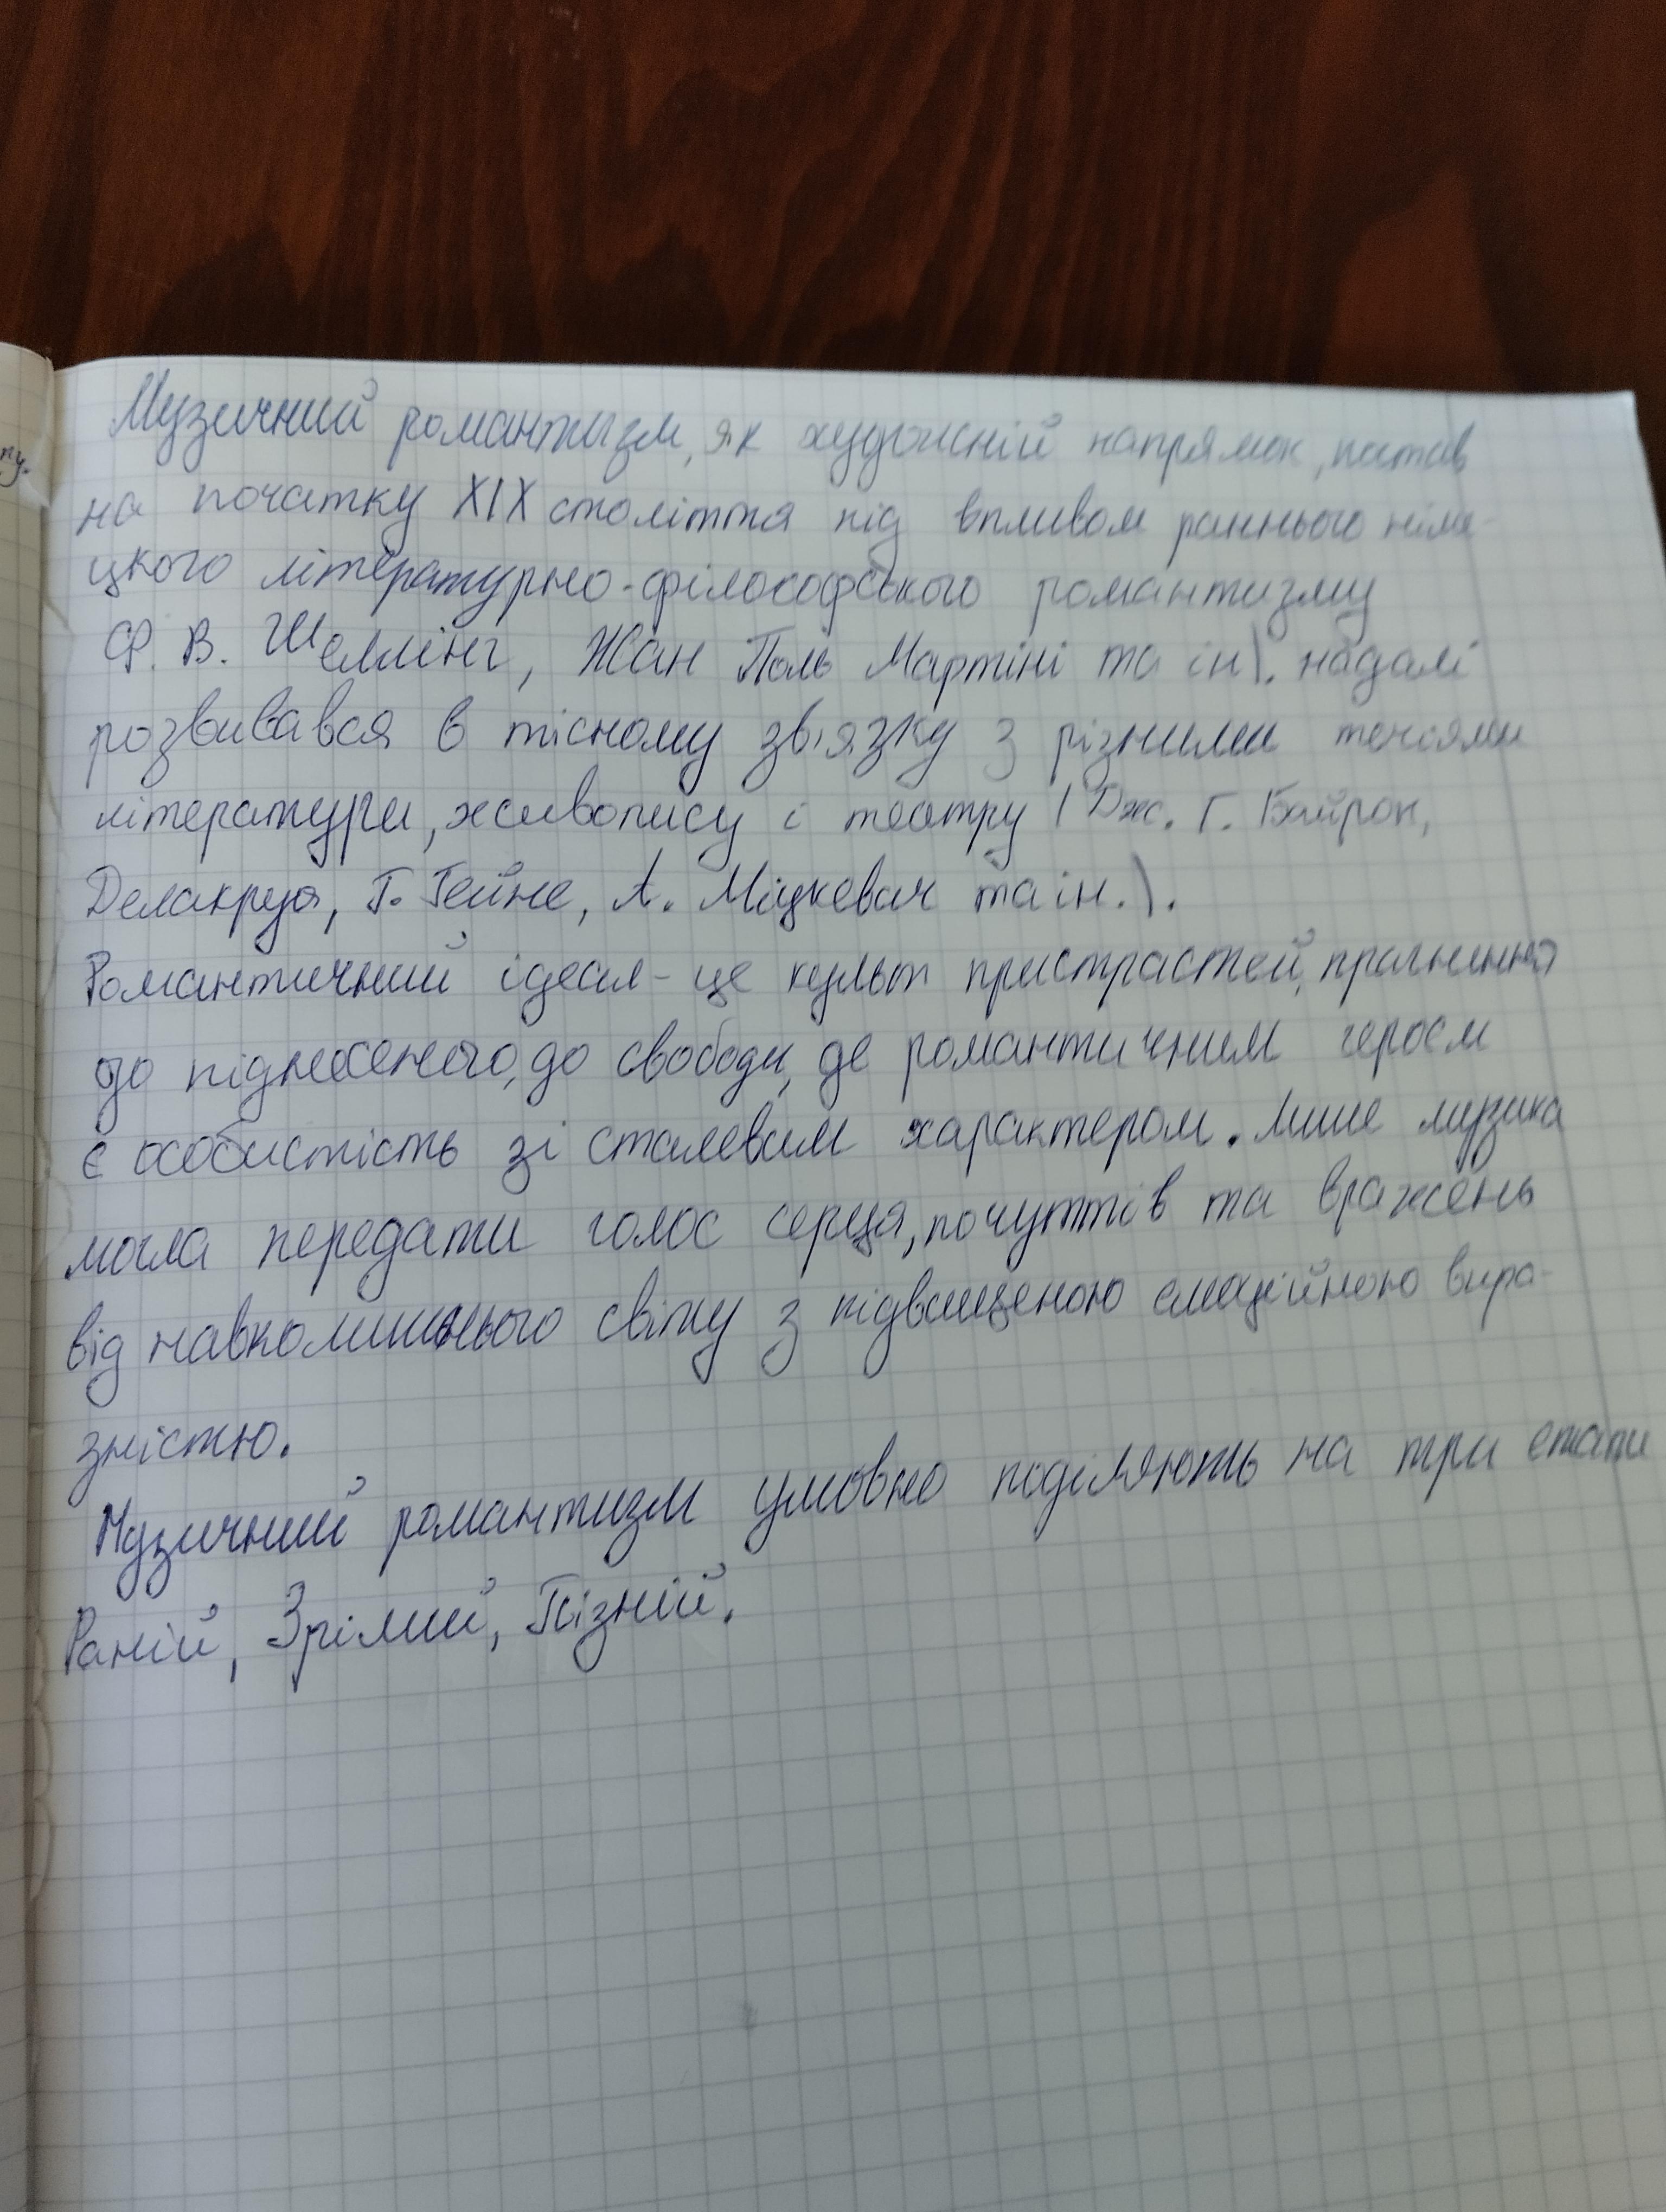 Музичний романтизм, як художній напрямок, постав
на початку XIX століття під впливом раннього німе-
цкого літературно-філософського романтизму
Ф. В. Шеллінг, Жан Поль Мартіні та ін). надалі
розвивався в тісному зв'язку з різними течіями
літератури, живопису і театру (Дж. Г. Байрон,
Делакруа, Г. Гейне, А. Міцкевич та ін.).
Романтичний ідеал - це культ пристрастей, прагнення
до піднесеного, до свободи, де романтичним героєм
є особистість зі сталевим характером. Лише музика
могла передати голос серця, почуттів та вражень
від навколишнього світу з підвищеною емоційною вира-
зністю.
Музичний романтизм умовно поділяють на три етапи
Раній, Зрілий, Пізній.